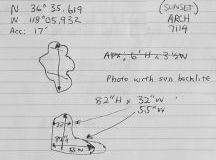 N 36° 35.619
W 118° 05.932
Acc: 17'
(SUNSET)
ARCH
7114
APX, 6' H x 3 ½ W
Photo with sun backlite
82" H x 32" W
55" W